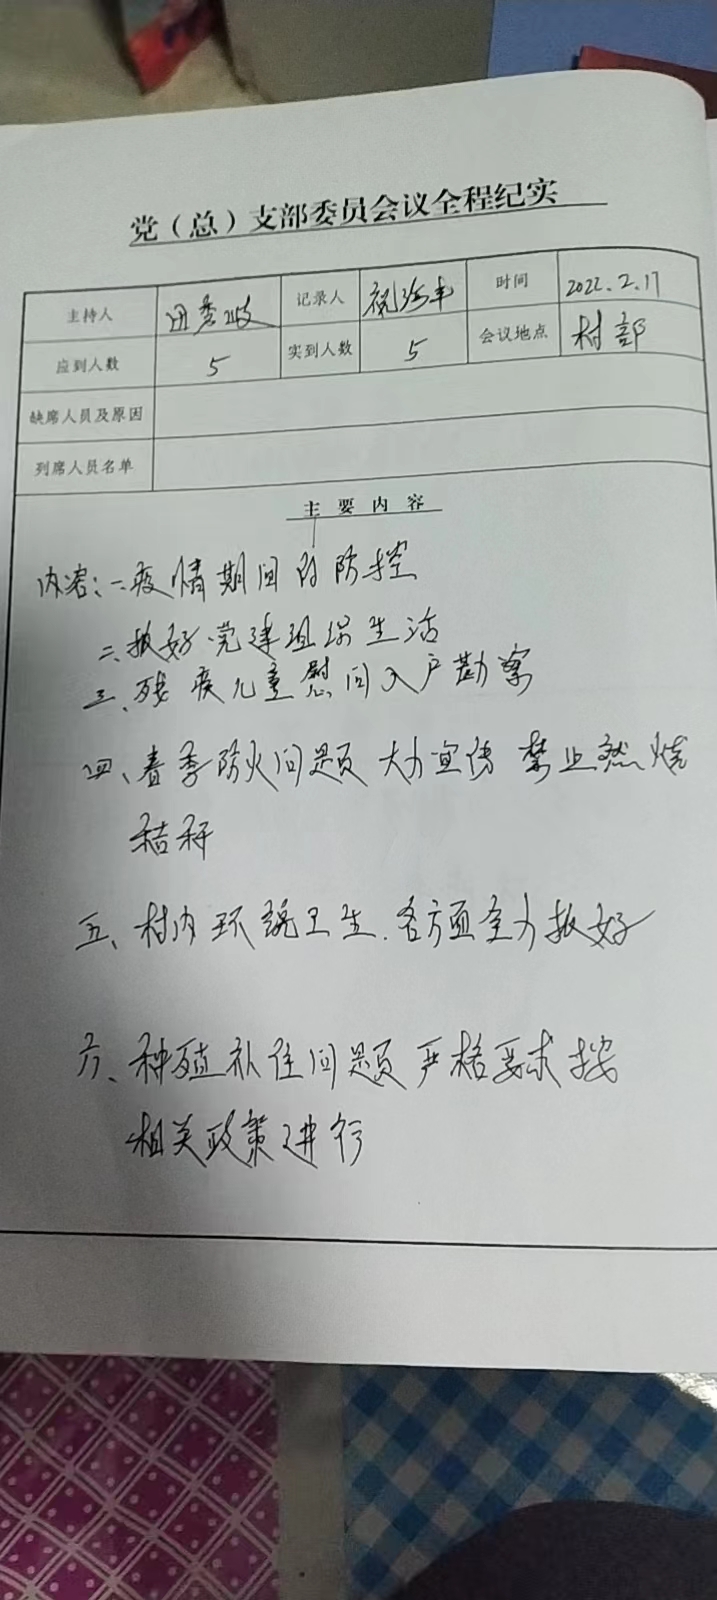 党（总）支部委员会议全程纪实
主持人 记录人 时间 2022.2.17
应到人数 5 实到人数 5 会议地点 村部
缺席人员及原因
列席人员名单
主要内容
内容：一疫情期间的防控
二、抓好党建组织生活
三、残疾儿童慰问入户勘察
四、春季防火问题 大力宣传 禁止燃烧
秸秆
五、村内环境卫生.各方面全力抓好
六、种殖补住问题严格要求按
相关政策进行